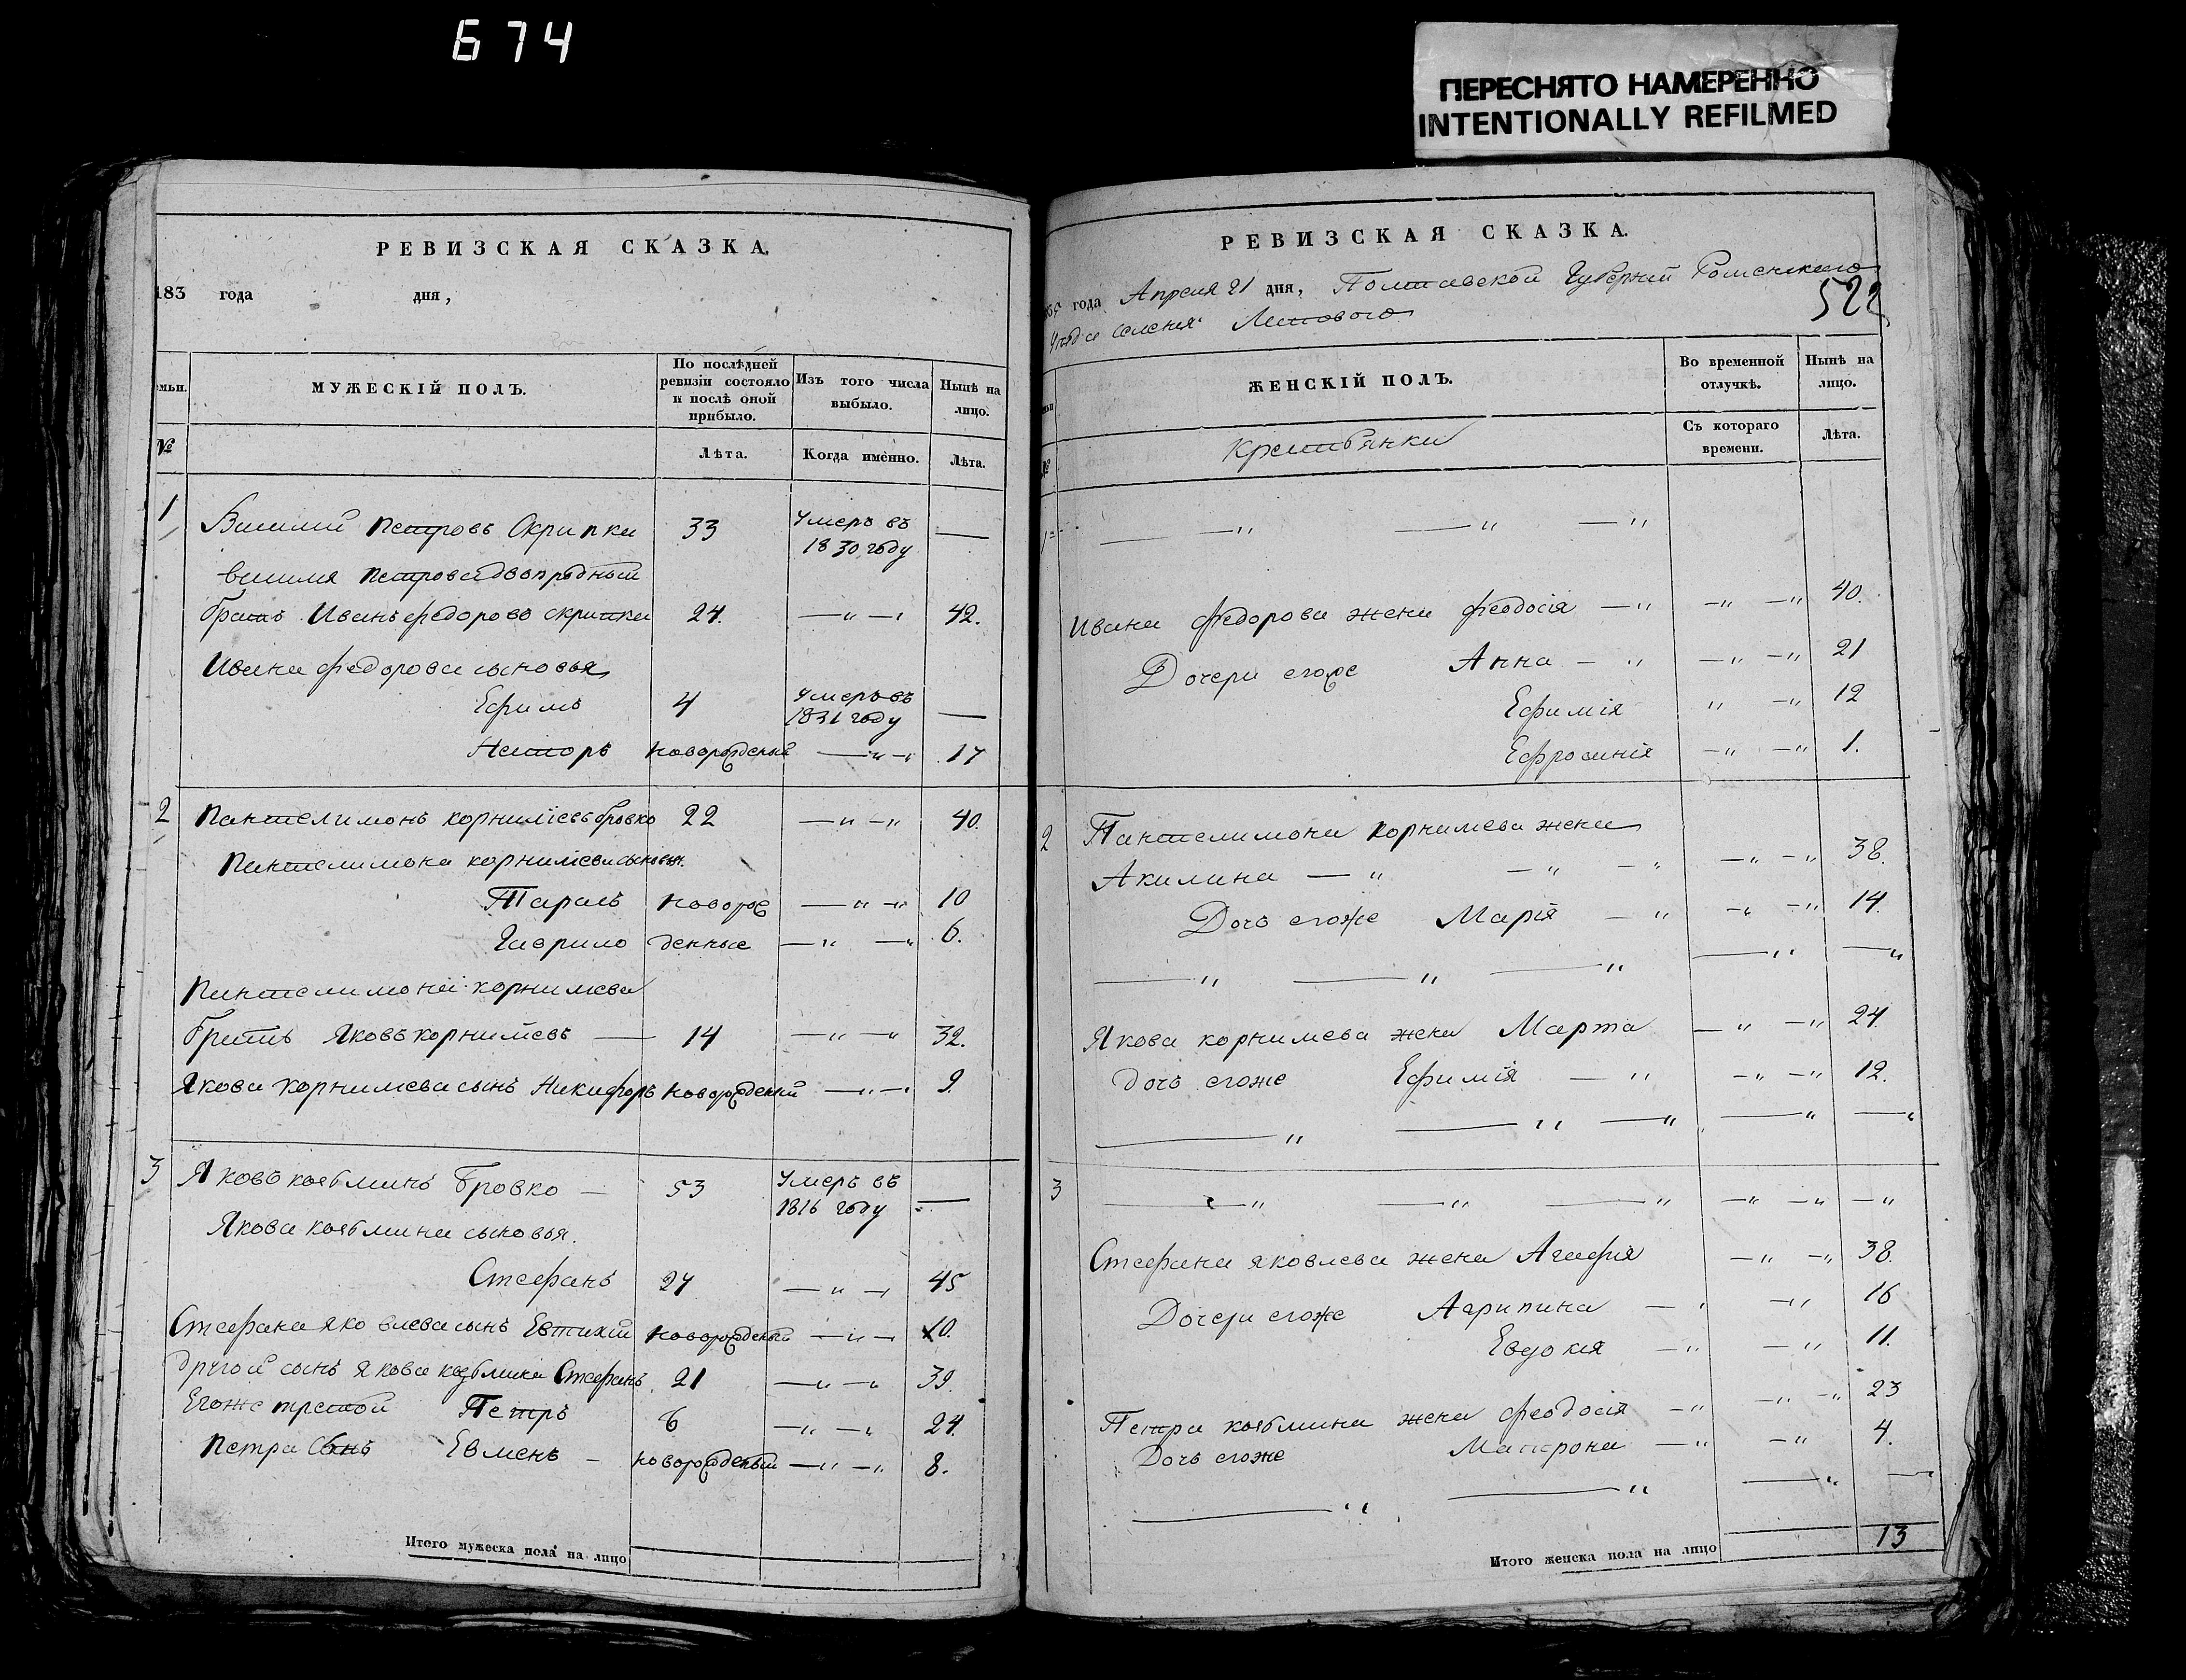 674
ПЕРЕСНЯТО НАМЕРЕННО
INTENTIONALLY REFILMED
РЕВИЗСКАЯ СКАЗКА.
183 года дня,
емьи.
МУЖЕСКІЙ ПОЛЪ.
По послѣдней ревизіи состояло и послѣ оной прибыло.
Изъ того числа выбыло.
Нынѣ на лицо.
№
Лѣта.
Когда именно.
Лѣта.
1 Василий Петровъ Скрипка 33 Умеръ въ 1830 году —
Василія Петрова двопродный
братъ Иванъ Федоровъ Скрипка 24. — " — 42.
Ивана Федорова сыновья
Ефимъ 4 Умеръ въ 1831 году —
Несторъ новорожденый — " — 17
2 Пантелимонъ Корниліевъ Бровко 22 — " — " 40.
Пантелимона Корниліева сыновья.
Тарасъ новорож — " — " 10
Гаврило денные — " — " 6.
Пантелимона Корнилиева
братъ Яковъ Корнилиевъ — 14 — " — " 32.
Якова Корнилиева сынъ Никифоръ новорожденый — " — 9.
3 Яковъ Козьминъ Бровко — 53 Умеръ въ 1816 году —
Якова Козьмина сыновья.
Стефанъ 27 — " — 45
Стефана Яковлева сынъ Евтихій новорожденый — " — 10.
Другой сынъ Якова Козьмина Стефанъ 21 — " — " 39.
Егоже третой Петръ 6 — " — " 24.
Петра Сынъ Евменъ — новорожденый — " — " 8.
Итого мужеска пола на лицо
РЕВИЗСКАЯ СКАЗКА.
года Апреля 21 дня, Полтавской Губерніи Роменского
522
Уезда селения Липового
ЖЕНСКІЙ ПОЛЪ.
Во временной отлучкѣ.
Нынѣ на лицо.
Крестьянки
Съ котораго времени.
Лѣта.
1 — " — " — "
Ивана Федорова жена Феодосія — " — " — " 40.
Дочери егоже Анна — " — " — " 21
Ефимія " — " 12
Ефросинія — " — " 1.
2 Пантелимона Корнилиева жена
Акилина — " — " — " — " — " 38.
Дочь егоже Марія — " — " — " 14.
— " — " — " — " — "
Якова Корнилиева жена Марта — " — " 24.
дочь егоже Ефимія — " — " — " 12.
— " — " — " — " — "
3 — " — " — " — " — " — "
Стефана Яковлева жена Агафия — " — " 38.
Дочери егоже Агрипина — " — " 16
Евдокия — " — " 11.
Петра Козьмина жена Феодосія — " — " — " 23
Дочь егоже Матрона — " — " 4.
— " — " — " —
Итого женска пола на лицо 13